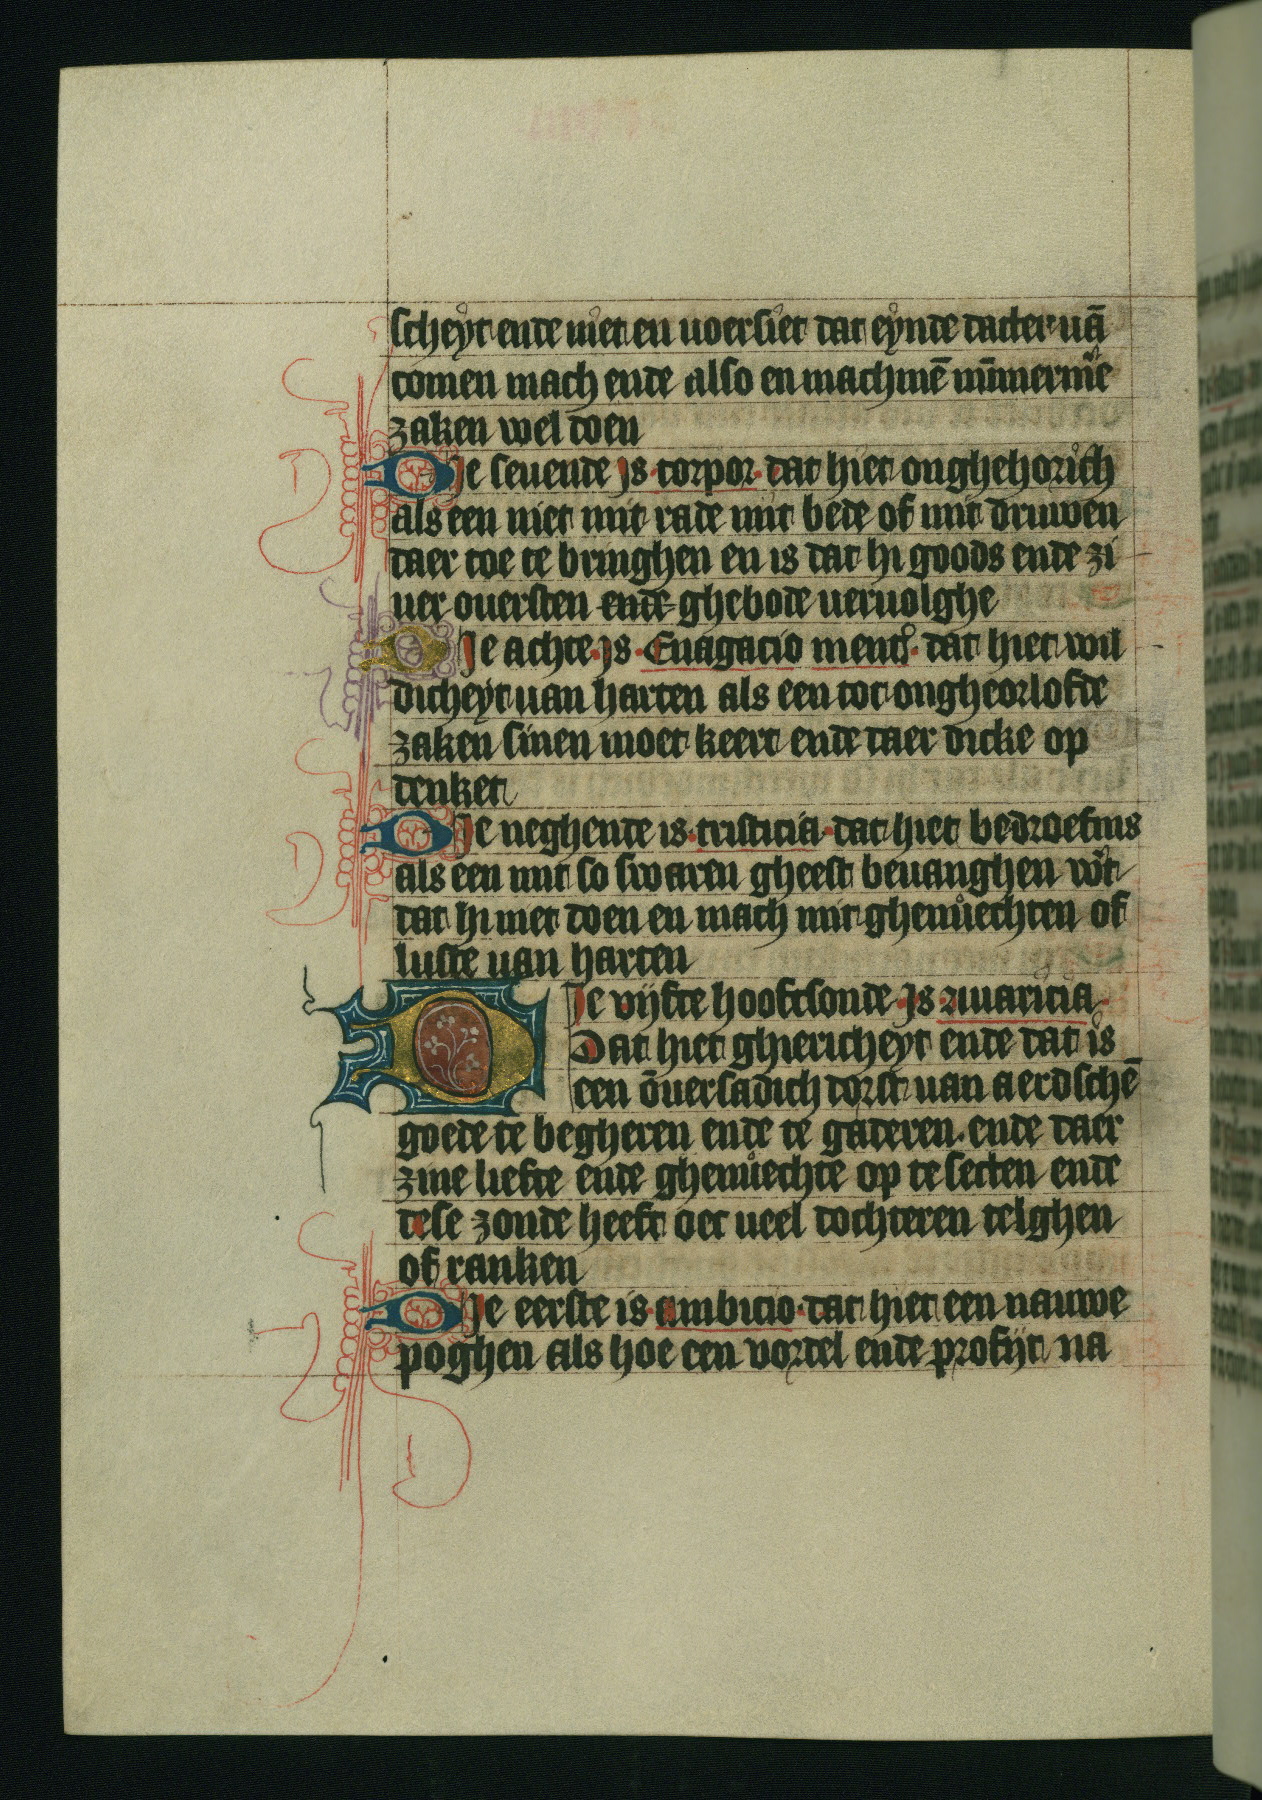 scheyt ende niet en voersiet dat eynde datter vā
comen mach ende also en machmē nūmermē
zaken wel doen
Die sevende is torpor dat hiet onghehorich
als een niet mit rade mit bede of mit druwen
daer toe te bringhen en is dat hi goods ende zi
ner oversten ende ghebode vervolghe
Die achte is Evagacio ment dat hiet wil
dicheyt van harten als een tot ongheorlofde
zaken sinen moet keert ende daer dicke op
denket
Die neghente is tristicia dat hiet bedroefnis
als een mit so swaren gheest bevanghen wt
dat hi niet doen en mach mit ghenuechten of
luste van harten
Die vijfte hooftsonde is avaricia
Dat hiet ghiericheyt ende dat is
een ōversadich dorst van aerdschē
goede te begheren ende te gaderen ende daer
zine liefte ende ghenuechte op te setten ende
dese zonde heeft oec veel dochteren telghen
of ranken
Die eerste is ambicio dat hiet een nauwe
poghen als hoe een vordel ende profijt na